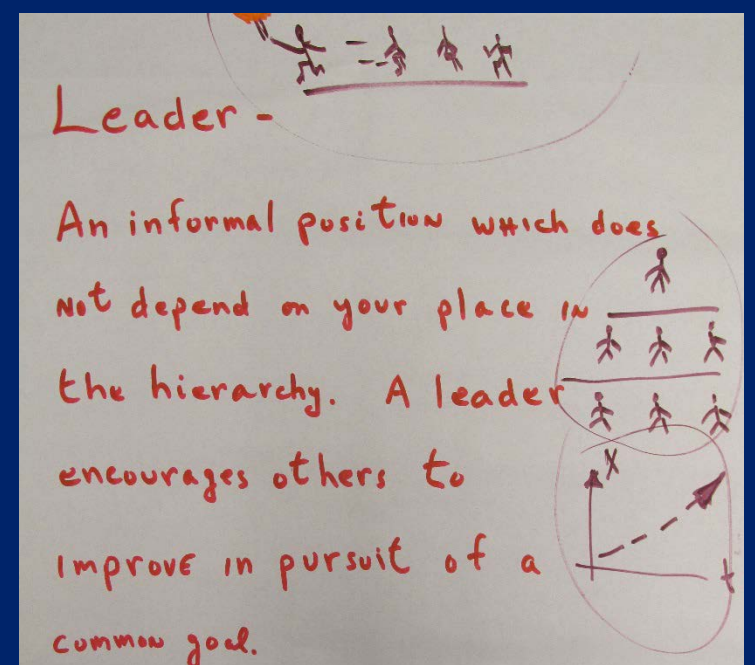 Leader -
An informal position which does
not depend on your place in
the hierarchy. A leader
encourages others to
improve in pursuit of a
common goal.
X
t